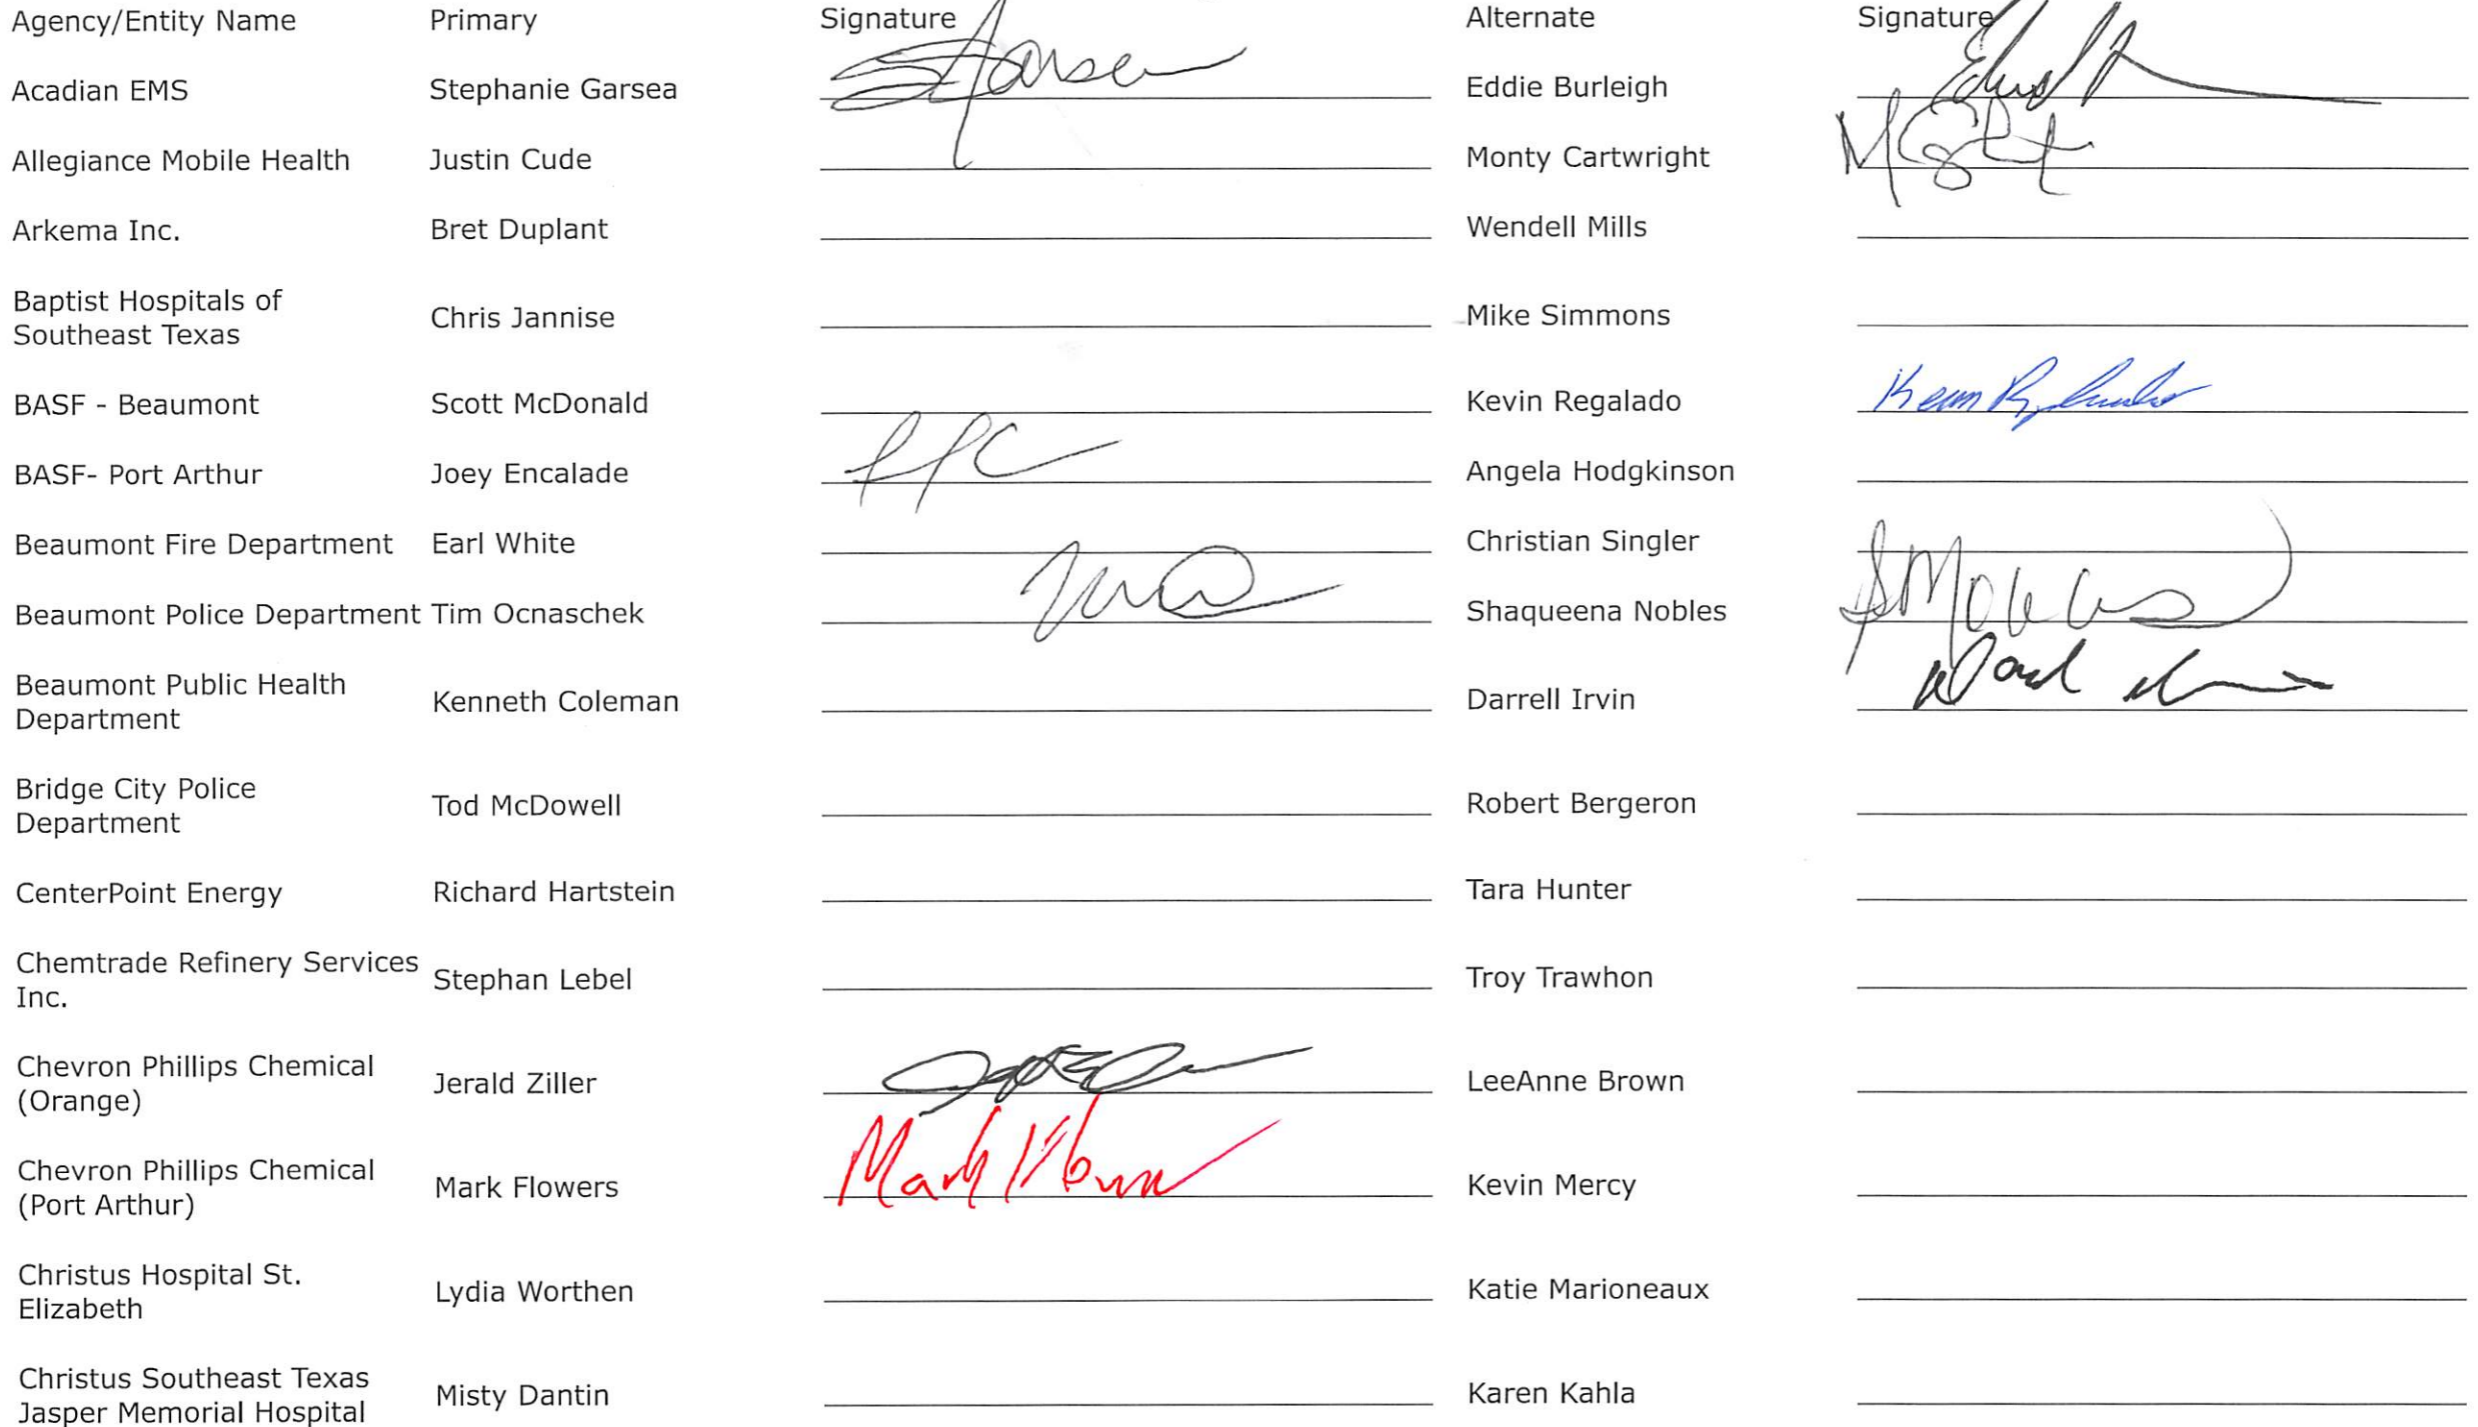 Agency/Entity Name Primary Signature Alternate Signature
Acadian EMS Stephanie Garsea Eddie Burleigh
Allegiance Mobile Health Justin Cude Monty Cartwright
Arkema Inc. Bret Duplant Wendell Mills
Baptist Hospitals of
Southeast Texas Chris Jannise Mike Simmons
BASF - Beaumont Scott McDonald Kevin Regalado
BASF- Port Arthur Joey Encalade Angela Hodgkinson
Beaumont Fire Department Earl White Christian Singler
Beaumont Police Department Tim Ocnaschek Shaqueena Nobles
Beaumont Public Health
Department Kenneth Coleman Darrell Irvin
Bridge City Police
Department Tod McDowell Robert Bergeron
CenterPoint Energy Richard Hartstein Tara Hunter
Chemtrade Refinery Services
Inc. Stephan Lebel Troy Trawhon
Chevron Phillips Chemical
(Orange) Jerald Ziller LeeAnne Brown
Chevron Phillips Chemical
(Port Arthur) Mark Flowers Mark Kevin Mercy
Christus Hospital St.
Elizabeth Lydia Worthen Katie Marioneaux
Christus Southeast Texas
Jasper Memorial Hospital Misty Dantin Karen Kahla